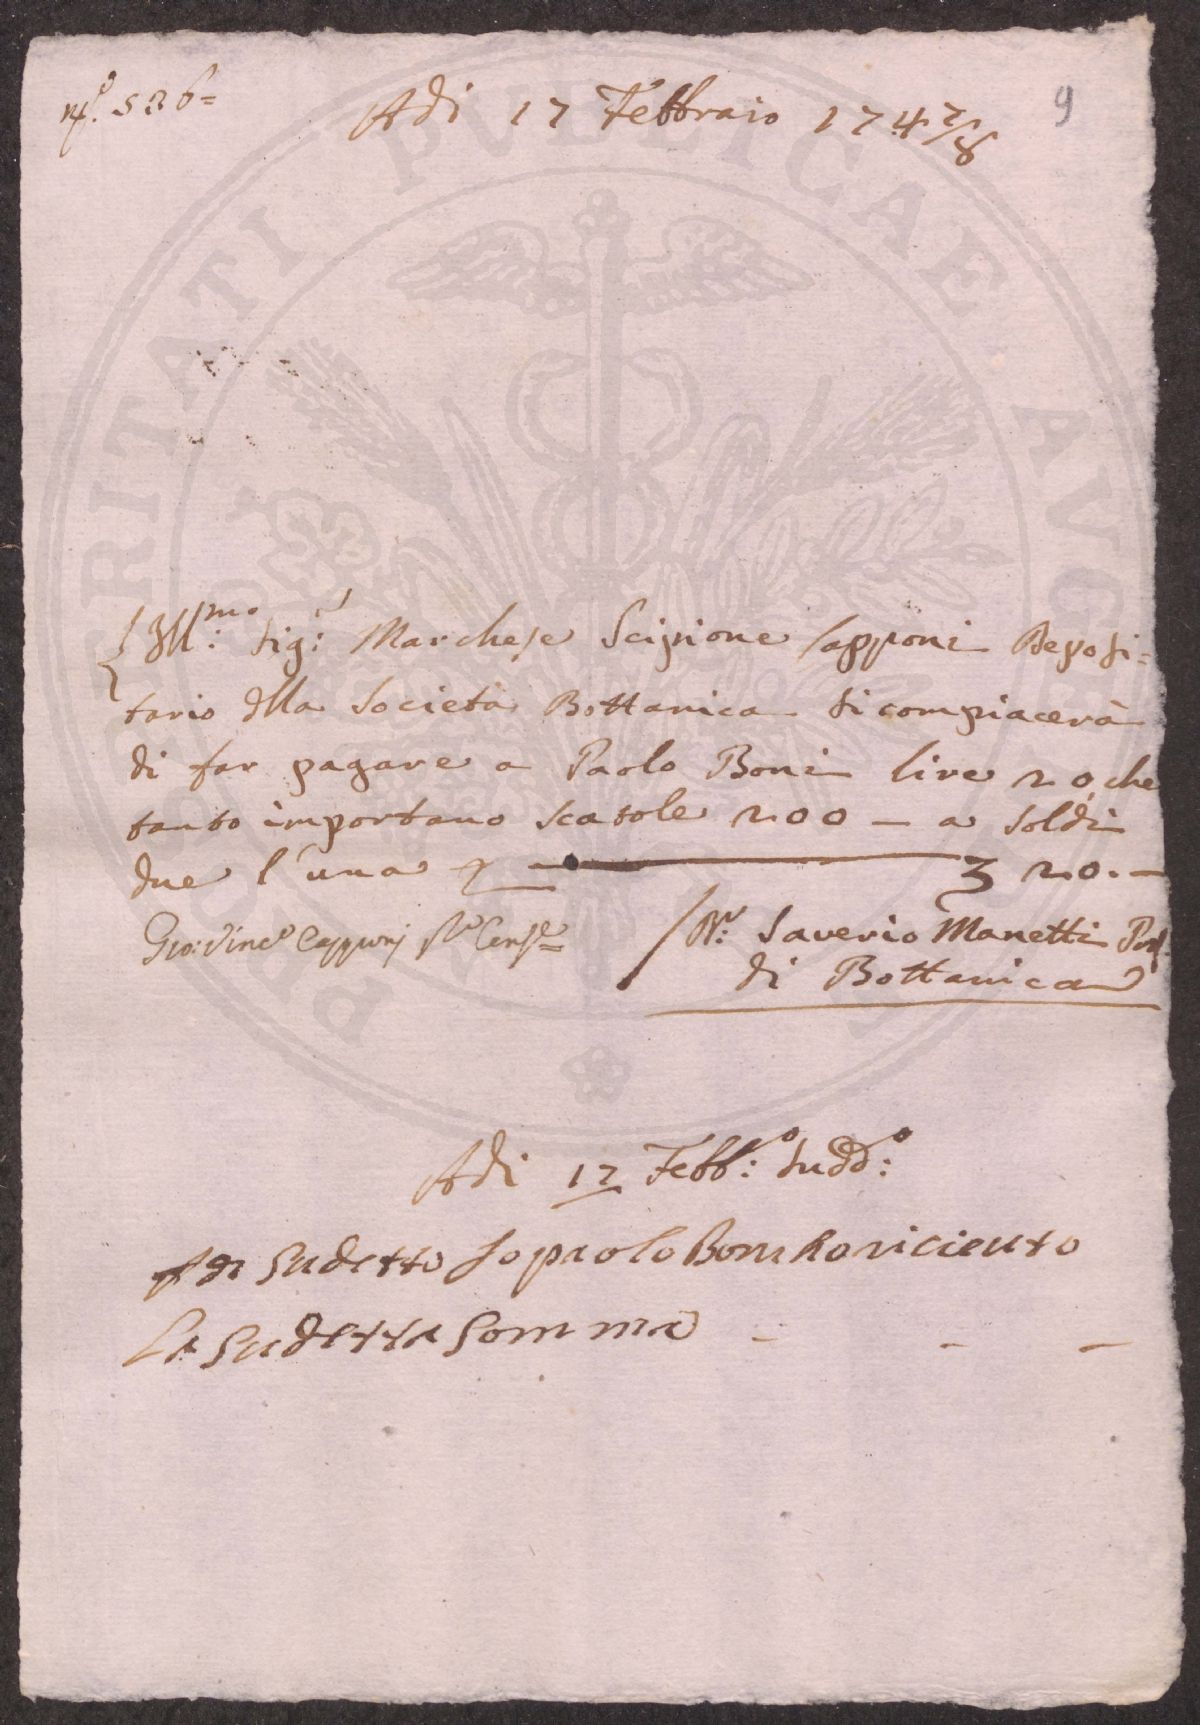 n.º 526=
Adi 17 Febbraio 1747/8
9
Ill.mo Sig.r Marchese Scipione Capponi Deposi=
tario della Società Bottanica si compiacerà
di far pagare a Paolo Boni lire 20, che
tanto importano scatole 200 — a soldi
due l'una 20. —
Gio: Vinc.o Capponi
D.r Saverio Manetti Prof.
di Bottanica
Adi 17 Febb.o sudd.o
Adi sudetto Io paolo Boni ho ricieuto
La sudetta Somma — — —
PROSPERITATI PUBLICAE AVGENDAE